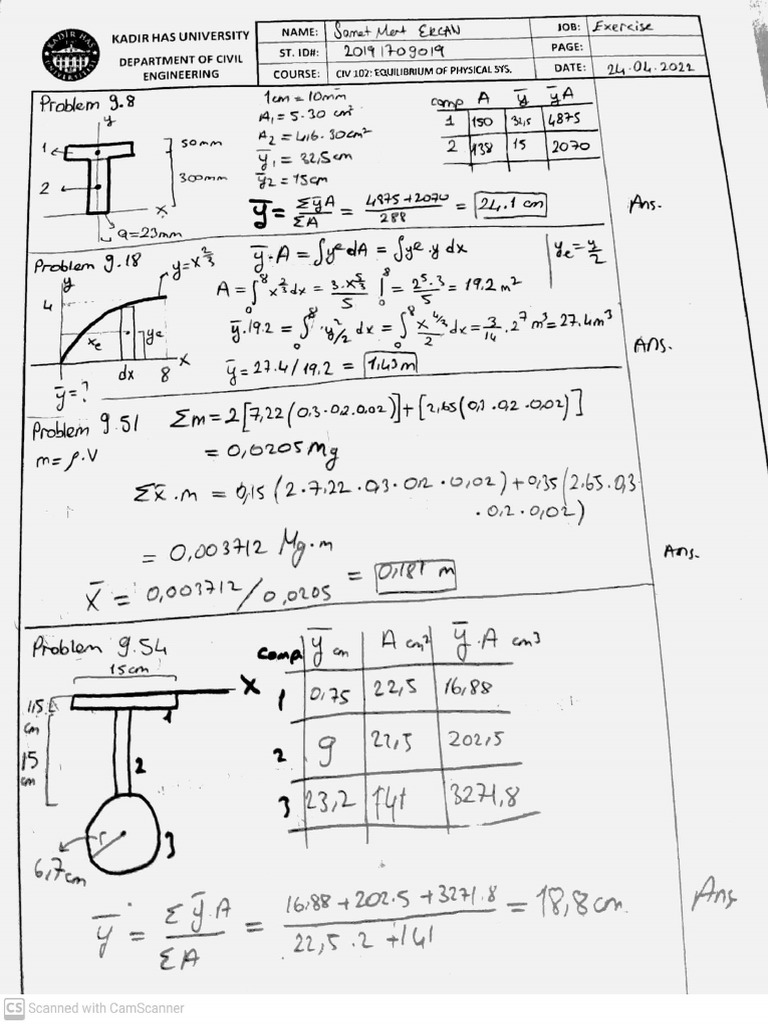 KADIR HAS UNIVERSITY
DEPARTMENT OF CIVIL
ENGINEERING
NAME: Samet Mert ERCAN
ST. ID#: 20191709019
COURSE: CIV 102: EQUILIBRIUM OF PHYSICAL SYS.
JOB: Exercise
PAGE:
DATE: 24.04.2022
Problem 9.8
y
1
2
50mm
300mm
x
a=23mm
1cm = 10mm
A₁ = 5.30 cm²
A₂ = 4,6.30cm²
ȳ₁ = 32,5cm
ȳ₂ = 15cm
comp A ȳ ȳA
1 150 32,5 4875
2 138 15 2070
ȳ = ΣȳA/ΣA = 4875+2070/288 = 24.1 cm
Ans.
Problem 9.18
y
y=x^2/3
4
xe
ye
x
dx 8
ȳ=?
ȳ.A = ∫yᵉdA = ∫yᵉ.y dx
ye = y/2
A = ∫₀⁸ x^2/3 dx = 3.x^5/3/5 |₀⁸ = 2⁵.3/5 = 19.2 m²
ȳ.19.2 = ∫₀⁸ y²/2 dx = ∫₀⁸ x^4/3/2 dx = 3/14 . 2⁷ m³ = 27.4m³
ȳ = 27.4/19.2 = 1,43m
Ans.
Problem 9.51
m = ρ.V
Σm = 2[7,22(0.3.0.2.0.02)]+[2,65(0.3.0.2.0.02)]
= 0,0205Mg
Σx̄.m = 0,15(2.7.22.0,3.0,2.0,02)+0,35(2.65.0,3
.0,2.0,02)
= 0,003712 Mg.m
x̄ = 0,003712/0,0205 = 0,181 m
Ans.
Problem 9.54
15cm
x
1,5
cm
15
cm
1
2
3
r
6,7cm
comp ȳ cm A cm² ȳ.A cm³
1 0,75 22,5 16,88
2 9 22,5 202,5
3 23,2 141 3271,8
ȳ = Σȳ.A/ΣA = 16,88+202.5+3271.8/22,5.2+141 = 18,8cm.
Ans
CS Scanned with CamScanner